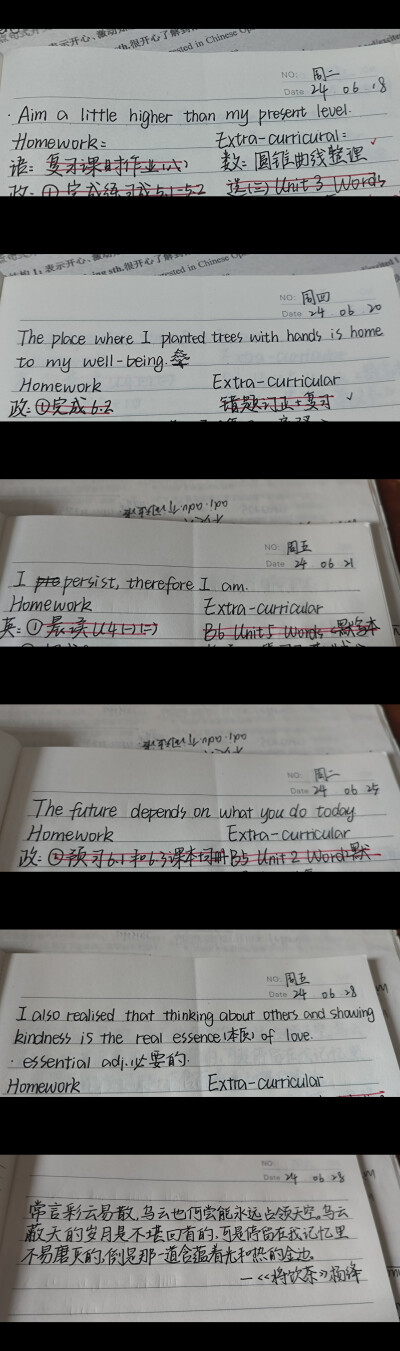 表示开心、激动
sth.很开心了解到
rested in Chinese Ope
NO: 周二
Date 24 06 18
· Aim a little higher than my present level.
Homework: Extra-curricural:
语: 复习课时作业(六) 数: 圆锥曲线整理 ✓
政: ①完成练习戒5.1-5.2 选(三) Unit 3 Words
表示开心、激动
rested in Chinese Oper
NO: 周四
Date 24 06 20
The place where I planted trees with hands is home
to my well-being.
Homework Extra-curricular
政: ①完成6.2 错题订正+复习 ✓
NO: 周五
Date 24 06 21
I pto persist, therefore I am.
Homework Extra-curricular
英: ①晨读U4(一)(二) B6 Unit 5 Words 默写本
NO: 周二
Date 24 06 25
The future depends on what you do today
Homework Extra-curricular
政: ②预习6.1和6.3课本 B5 Unit 2 Words默
NO: 周五
Date 24 06 28
I also realised that thinking about others and showing
kindness is the real essence(本质) of love.
· essential adj.必要的.
Homework Extra-curricular
NO:
Date 24 06 28
常言彩云易散,乌云也何尝能永远占领天空。乌云
蔽天的岁月是不堪回首的,可是停留在我记忆里
不易磨灭的,倒是那一道含蕴着光和热的金边。
—《将饮茶》杨绛